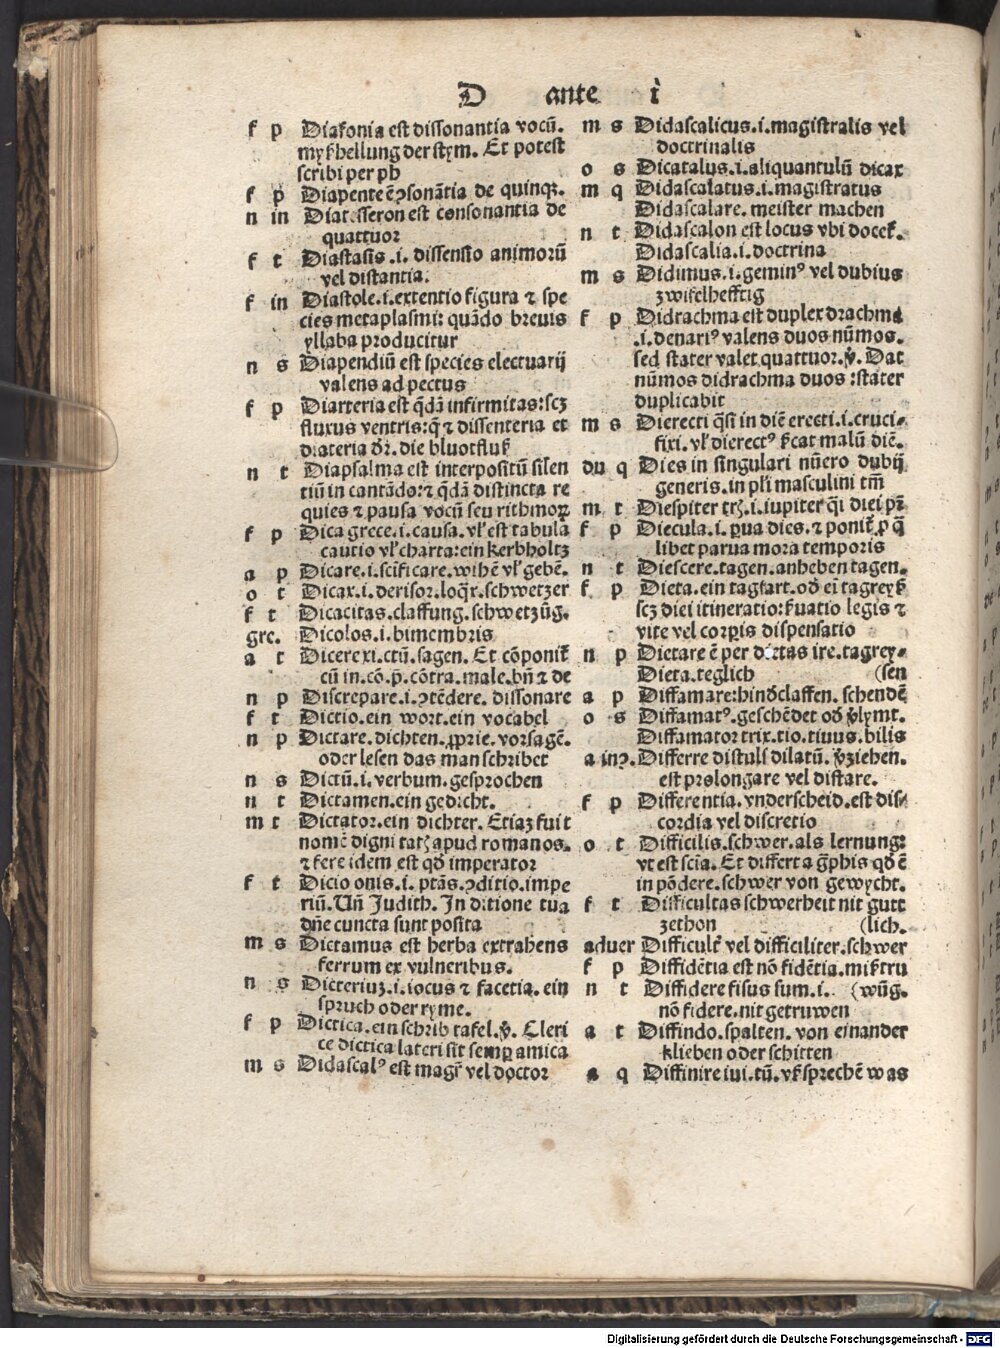 D ante i
f p Diafonia est dissonantia vocū.
myßhellung der stym. Et potest
scribi per ph
f p Diapente ē ꝯsonātia de quinqꝫ.
n in Diatesseron est consonantia de
quattuor
f t Diastasis .i. dissensio animorū
vel distantia.
f in Diastole .i. extentio figura ⁊ spe
cies metaplasmi: quādo breuis
syllaba producitur
n s Diapendiū est species electuarij
valens ad pectus
f p Diarteria est q̄dā infirmitas: scꝫ
fluxus ventris: q̄ ⁊ dissenteria et
diateria dr̄. die bluotfluß
n t Diapsalma est interpositū silen
tiū in cantādo: ⁊ q̄dā distincta re
quies ⁊ pausa vocū seu rithmoꝝ
f p Dica grece .i. causa. vl̓ est tabula
cautio vl̓ charta: ein kerbholtz
a p Dicare .i. scīficare. wihē vl̓ gebē.
o t Dicax .i. derisor. loqr̄. schwetzer
f t Dicacitas. claffung. schwetzūg.
gre. Dicolos .i. bimembris
a t Dicere xi. ctū. sagen. Et cōponit᷑
cū in. cō. p̱. cōtra. male. bn̄ ⁊ de
n p Discrepare .i. ꝯtēdere. dissonare
f t Dictio. ein wort. ein vocabel
n p Dictare. dichten. ꝓprie. vorsagē.
oder lesen das man schribet
n s Dictū .i. verbum. gesprochen
n t Dictamen. ein gedicht.
m t Dictator. ein dichter. Etiaꝫ fuit
nomē dignitatꝭ apud romanos.
⁊ fere idem est qd̓ imperator
f t Dicio onis .i. ptās. ꝯditio. impe
riū. Uñ Judith. In ditione tua
dñe cuncta sunt posita
m s Dictamus est herba extrahens
ferrum ex vulneribus.
n s Dicteriuꝫ .i. iocus ⁊ facetia. ein
spruch oder ryme.
f p Dictica. ein schrib tafel. ꝟ. Cleri
ce dictica lateri sit semꝑ amica
m s Didascalꝰ est magr̄ vel doctor
m s Didascalicus .i. magistralis vel
doctrinalis
o s Dicatalus .i. aliquantulū dicax
m q Didascalatus .i. magistratus
Didascalare. meister machen
n t Didascalon est locus vbi docet᷑.
Didascalia .i. doctrina
m s Didimus .i. geminꝰ vel dubius
zwifelhefftig
f p Didrachma est duplex drachma
.i. denariꝰ valens duos nūmos.
sed stater valet quattuor. ꝟ. Dat
nūmos didrachma duos: stater
duplicabit
m s Dierecti q̄si in diē erecti .i. cruci-
fixi. vl̓ dierectꝰ ßcat malū diē.
du q Dies in singulari nūero dubij
generis. in pl̓i masculini tm̄
m t Diespiter trꝭ .i. iupiter q̄i diei pr̄
f p Diecula .i. ꝑua dies. ⁊ ponit᷑ ꝓ q̄
libet parua mora temporis
n t Diescere. tagen. anheben tagen.
f p Dieta. ein tagfart. od̓ ei tagreyß
scꝫ diei itineratio: ßuatio legis ⁊
vite vel corꝑis dispensatio
n p Dietare ē per dietas ire. tagrey-
(sen
Dieta. teglich
a p Diffamare: hind̓claffen. schendē
o s Diffamatꝰ. geschēdet od̓ ꝟlymt.
Diffamator trix. tio. tiuus. bilis
a inꝯ. Differre distuli dilatū. ꝟziehen.
est prolongare vel distare.
f p Differentia. vnderscheid. est dis-
cordia vel discretio
o t Difficilis. schwer. als lernung:
vt est scīa. Et differt a g̓phis qd̓ ē
in pōdere. schwer von gewycht.
f t Difficultas schwerheit nit gutt
zethon (lich.
aduer Difficult᷑ vel difficiliter. schwer
f p Diffidētia est nō fidētia. mißtru
(wūg.
n t Diffidere fisus sum .i.
nō fidere. nit getruwen
a t Diffindo. spalten. von einander
klieben oder schitten
a q Diffinire iui. tū. vßsprechē was
Digitalisierung gefördert durch die Deutsche Forschungsgemeinschaft - DFG